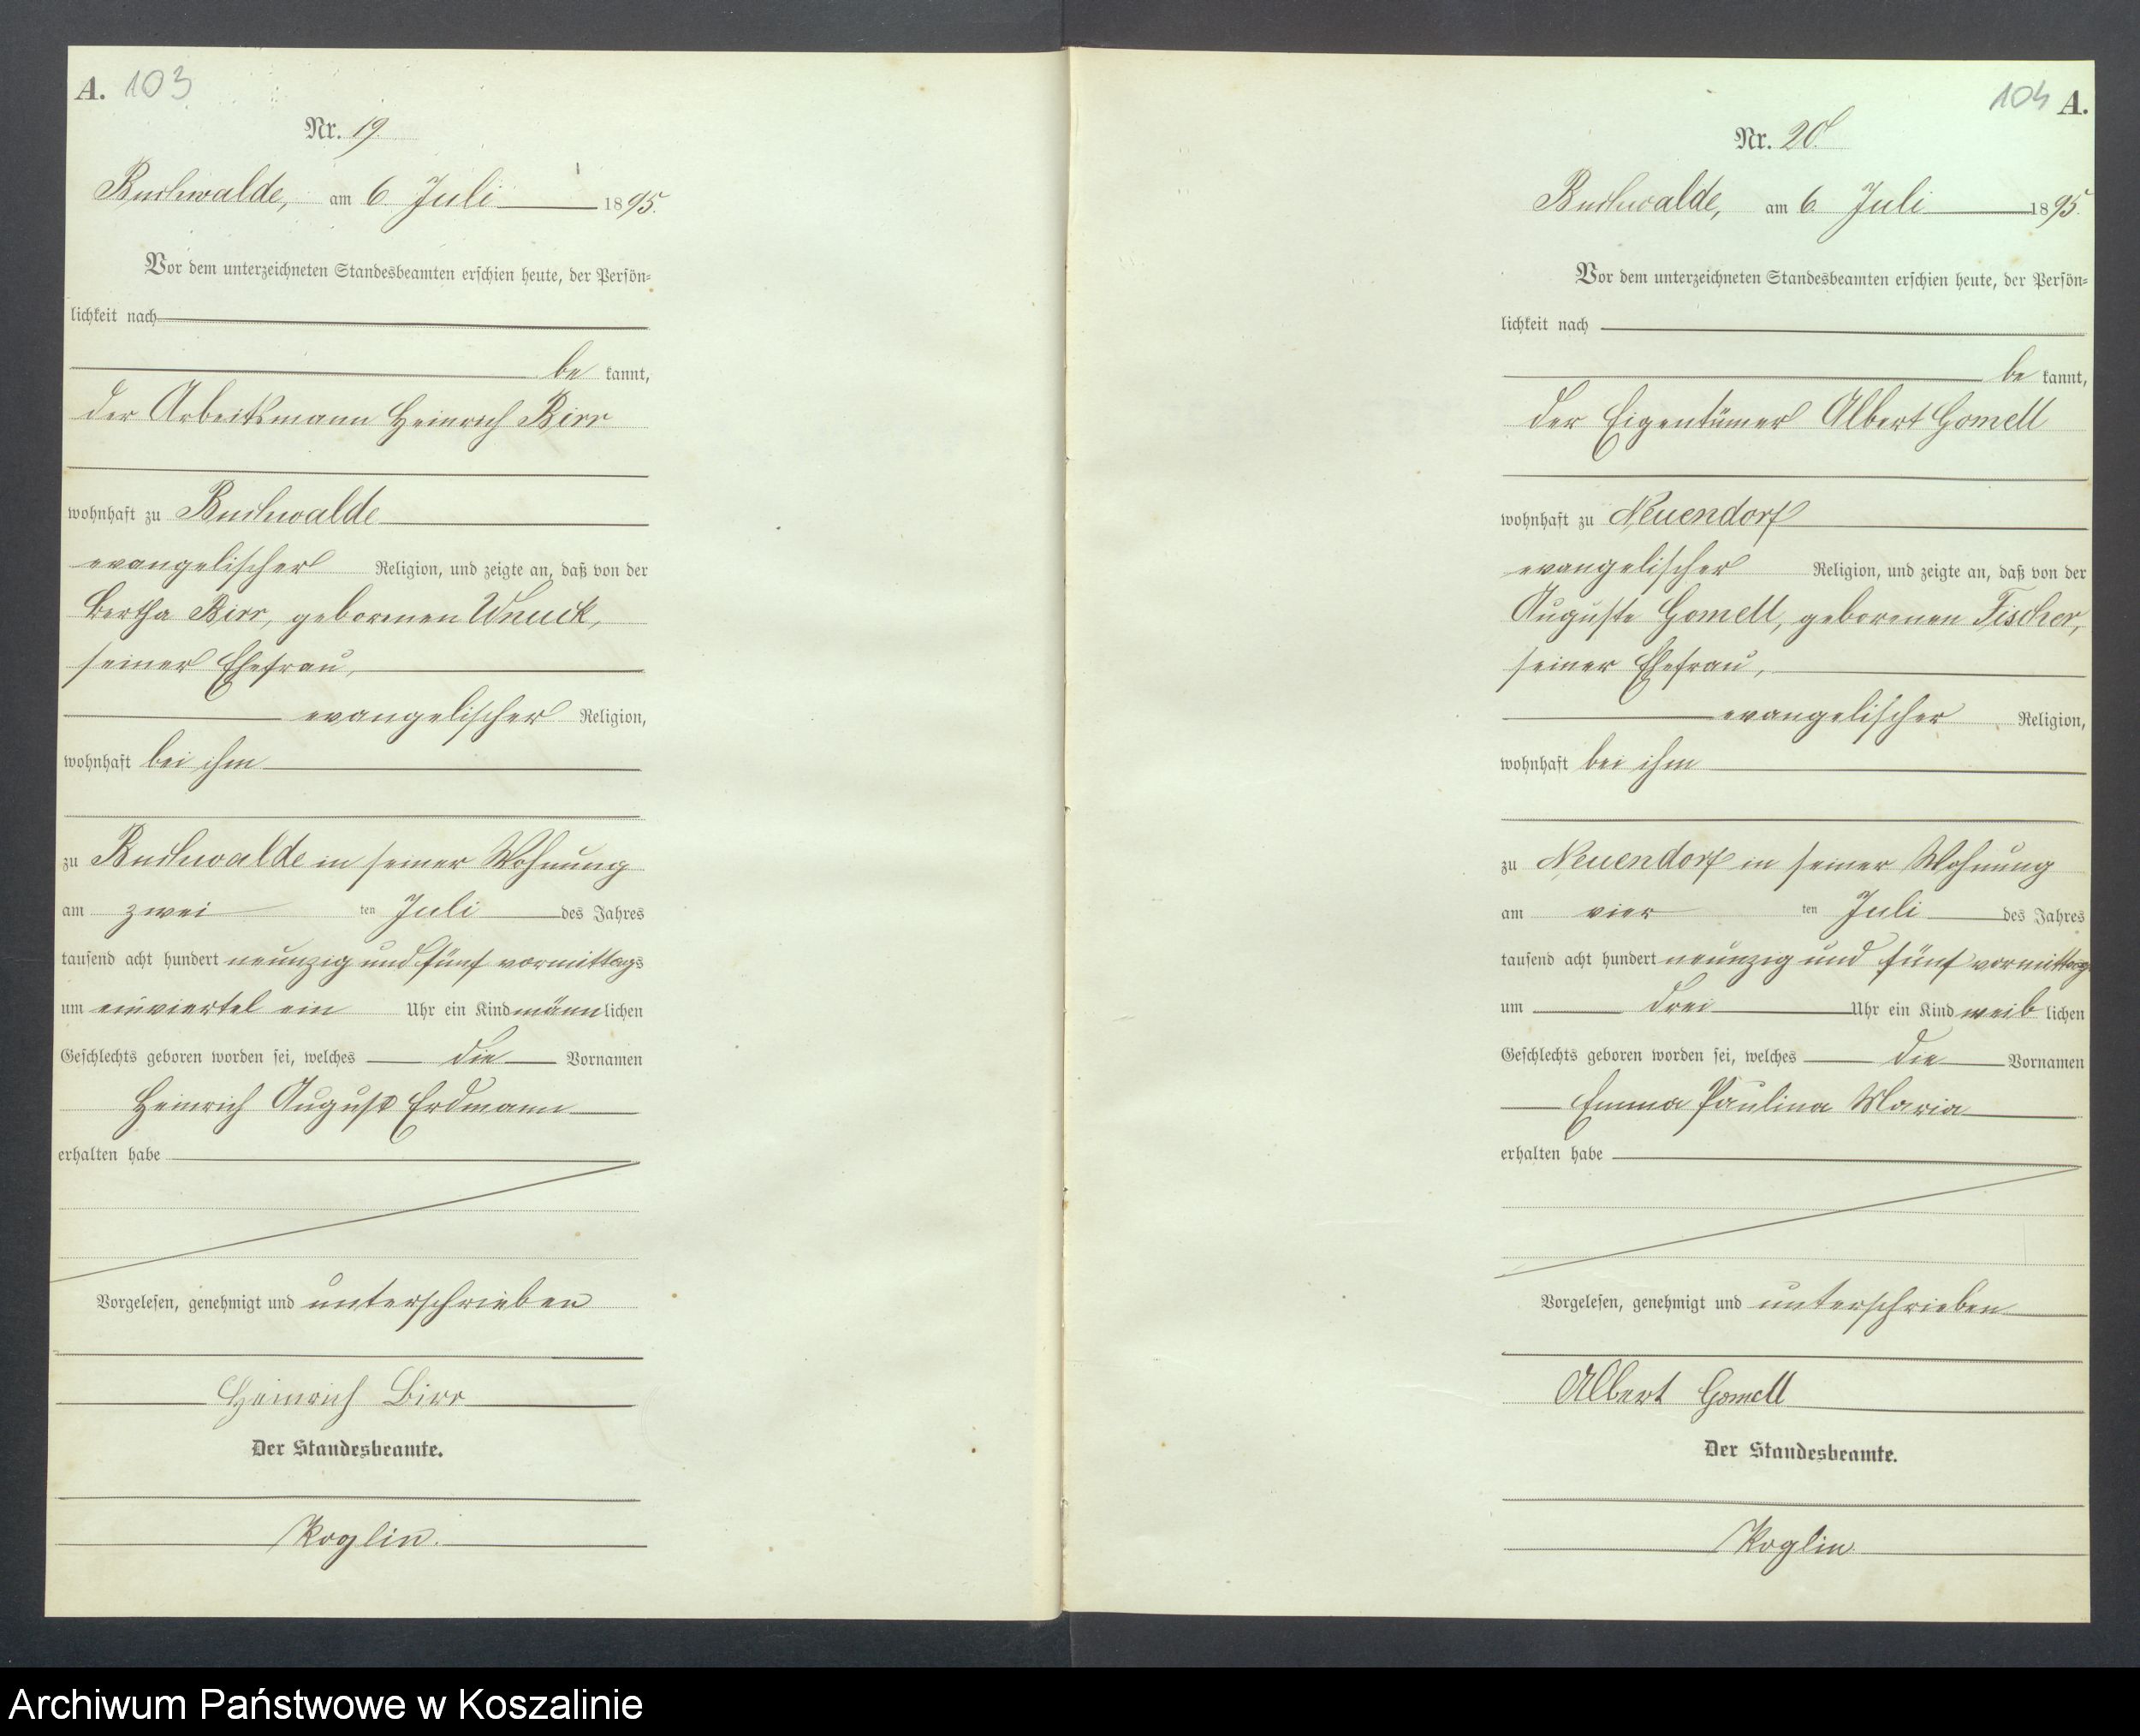 A. 103
Nr. 19.
Buchwalde, am 6. Juli 1895.
Vor dem unterzeichneten Standesbeamten erschien heute, der Persön-
lichkeit nach
be kannt,
der Arbeitsmann Heinrich Birr
wohnhaft zu Buchwalde
evangelischer Religion, und zeigte an, daß von der
Bertha Birr, geborenen Wnuck,
seiner Ehefrau,
evangelischer Religion,
wohnhaft bei ihm
zu Buchwalde in seiner Wohnung
am zwei ten Juli des Jahres
tausend acht hundert neunzig und fünf vormittags
um einviertel ein Uhr ein Kind männlichen
Geschlechts geboren worden sei, welches die Vornamen
Heinrich August Erdmann
erhalten habe
Vorgelesen, genehmigt und unterschrieben
Heinrich Birr
Der Standesbeamte.
Koglin.
104 A.
Nr. 20.
Buchwalde, am 6. Juli 1895.
Vor dem unterzeichneten Standesbeamten erschien heute, der Persön-
lichkeit nach
be kannt,
der Eigentümer Albert Gomell
wohnhaft zu Neuendorf
evangelischer Religion, und zeigte an, daß von der
Auguste Gomell, geborenen Fischer,
seiner Ehefrau,
evangelischer Religion,
wohnhaft bei ihm
zu Neuendorf in seiner Wohnung
am vier ten Juli des Jahres
tausend acht hundert neunzig und fünf vormittags
um drei Uhr ein Kind weib lichen
Geschlechts geboren worden sei, welches die Vornamen
Emma Paulina Maria
erhalten habe
Vorgelesen, genehmigt und unterschrieben
Albert Gomell
Der Standesbeamte.
Koglin.
Archiwum Państwowe w Koszalinie